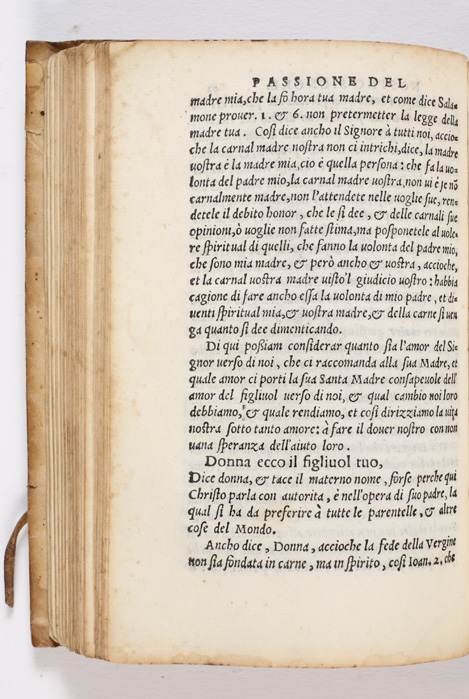 PASSIONE DEL
madre mia, che la fo hora tua madre, et come dice Sala-
mone prouer. 1. & 6. non pretermetter la legge della
madre tua. Così dice ancho il Signore à tutti noi, accio-
che la carnal madre nostra non ci intrichi, dice, la madre
uostra è la madre mia, cio è quella persona: che fa la uo-
lonta del padre mio, la carnal madre uostra, non ui è se nō
carnalmente madre, non l'attendete nelle uoglie sue, ren-
detele il debito honor, che le si dee, & delle carnali sue
opinioni, ò uoglie non fatte stima, ma posponetele al uole-
re spiritual di quelli, che fanno la uolonta del padre mio,
che sono mia madre, & però ancho & uostra, accioche,
et la carnal uostra madre uisto'l giudicio uostro: habbia
cagione di fare ancho essa la uolonta di mio padre, et di-
uenti spiritual mia, & uostra madre, & della carne si uen
ga quanto si dee dimenticando.
Di qui possiam considerar quanto sia l'amor del Si-
gnor uerso di noi, che ci raccomanda alla sua Madre, et
quale amor ci porti la sua Santa Madre consapeuole dell'
amor del figliuol uerso di noi, & qual cambio noi loro
debbiamo, & quale rendiamo, et così dirizziamo la uita
nostra sotto tanto amore: à fare il douer nostro con non
uana speranza dell'aiuto loro.
Donna ecco il figliuol tuo,
Dice donna, & tace il materno nome, forse perche qui
Christo parla con autorita, è nell'opera di suo padre, la
qual si ha da preferire à tutte le parentelle, & altre
cose del Mondo.
Ancho dice, Donna, accioche la fede della Vergine
non sia fondata in carne, ma in spirito, così Ioan. 2. che